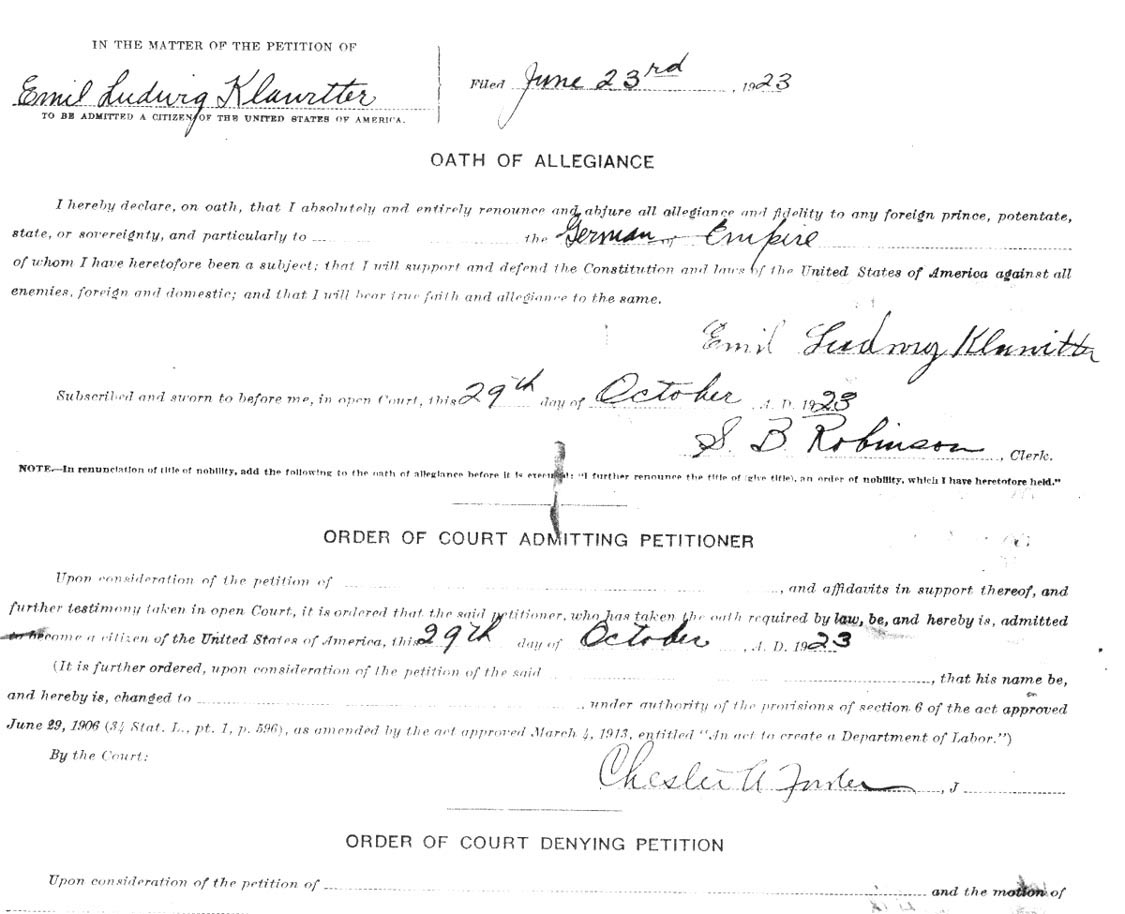 IN THE MATTER OF THE PETITION OF
Emil Ludwig Klawitter
TO BE ADMITTED A CITIZEN OF THE UNITED STATES OF AMERICA.
Filed June 23rd, 1923
OATH OF ALLEGIANCE
I hereby declare, on oath, that I absolutely and entirely renounce and abjure all allegiance and fidelity to any foreign prince, potentate,
state, or sovereignty, and particularly to the German of Empire
of whom I have heretofore been a subject; that I will support and defend the Constitution and laws of the United States of America against all
enemies, foreign and domestic; and that I will bear true faith and allegiance to the same.
Emil Ludwig Klawitter
Subscribed and sworn to before me, in open Court, this 29th day of October, A. D. 1923
S. B. Robinson, Clerk.
NOTE.—In renunciation of title of nobility, add the following to the oath of allegiance before it is executed: "I further renounce the title of (give title), an order of nobility, which I have heretofore held."
ORDER OF COURT ADMITTING PETITIONER
Upon consideration of the petition of , and affidavits in support thereof, and
further testimony taken in open Court, it is ordered that the said petitioner, who has taken the oath required by law, be, and hereby is, admitted
to become a citizen of the United States of America, this 29th day of October, A. D. 1923
(It is further ordered, upon consideration of the petition of the said , that his name be,
and hereby is, changed to , under authority of the provisions of section 6 of the act approved
June 29, 1906 (34 Stat. L., pt. 1, p. 596), as amended by the act approved March 4, 1913, entitled "An act to create a Department of Labor.")
By the Court:
Chester A , J
ORDER OF COURT DENYING PETITION
Upon consideration of the petition of and the motion of